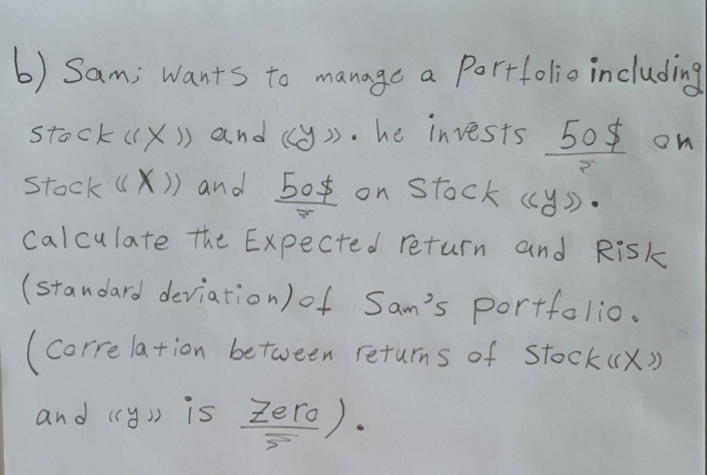 b) Sam; wants to manage a Portfolio including
stock «X» and «y». he invests 50$ on
stock «X» and 50$ on stock «y».
calculate the Expected return and Risk
(standard deviation) of Sam's portfolio.
(correlation between returns of stock «X»
and «y» is Zero).